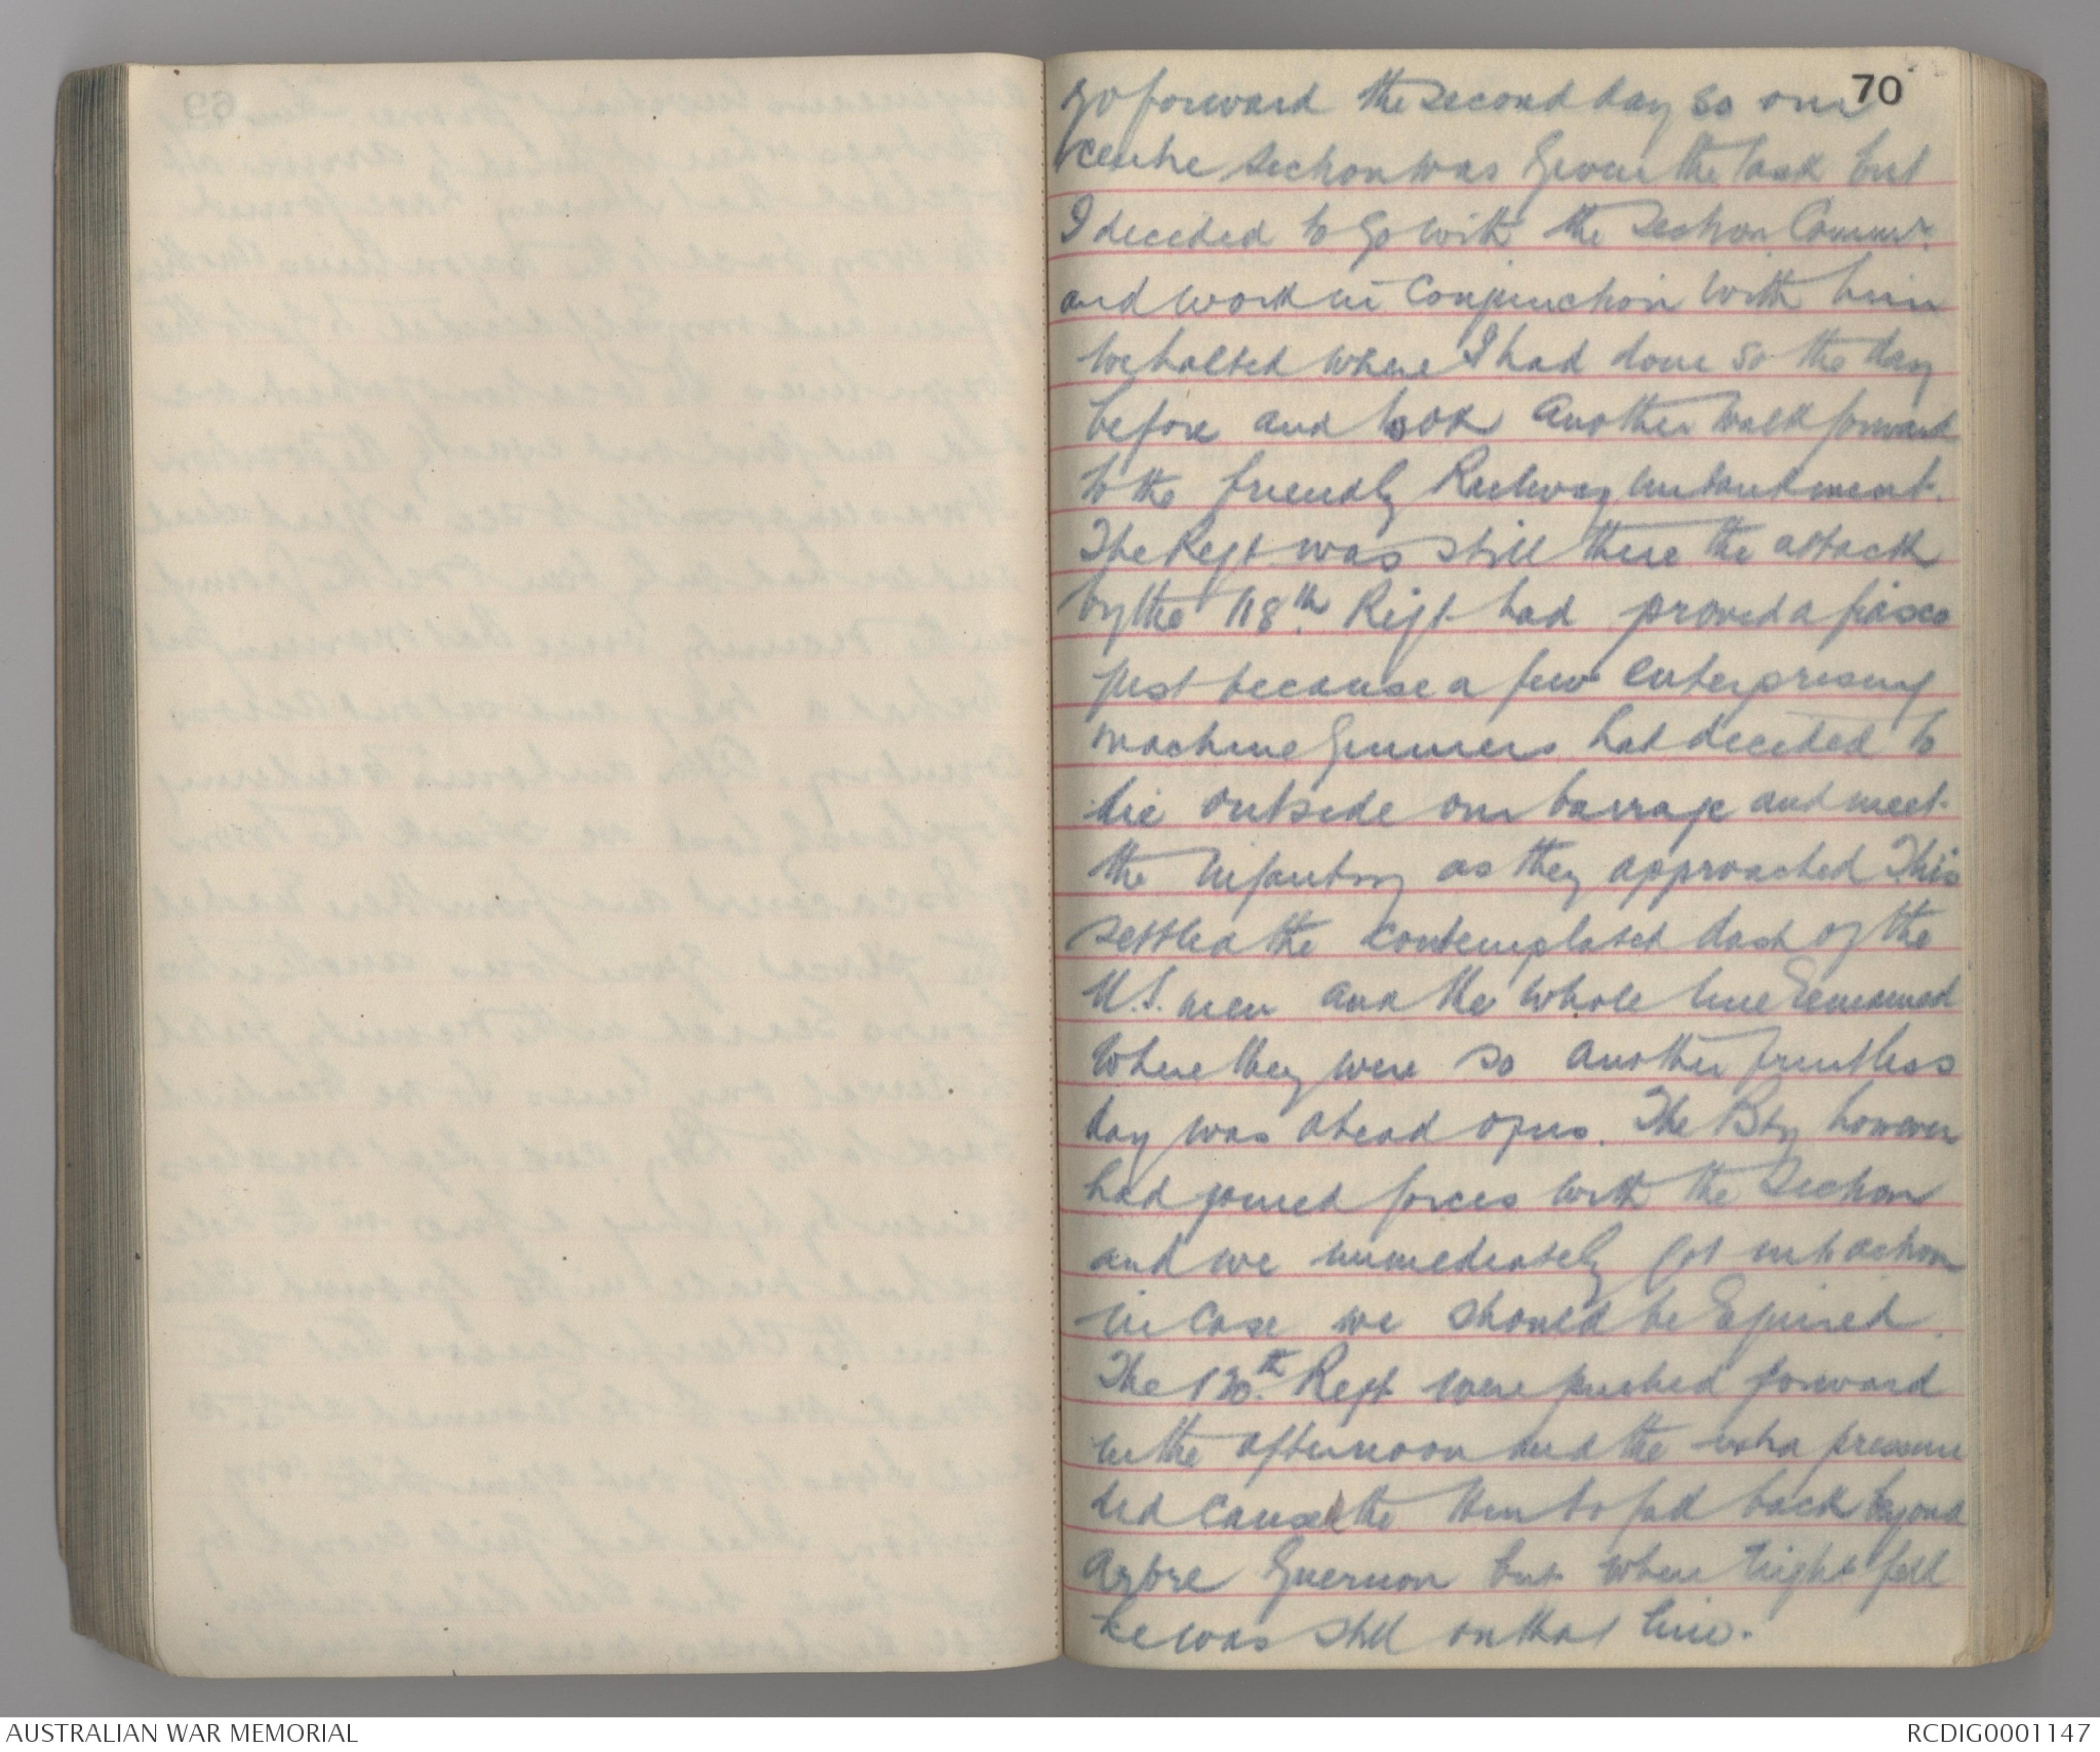 70
go forward the second day so our
centre section was given the task but
I decided to go with the Section Commr.
and work in conjunction with him
we halted where I had done so the day
before and took another walk forward
to the friendly Railway
The Regt was still there the attack
by the 118th. Regt had proved a fiasco
just because a few enterprising
machine gunners had decided to
lie outside our barrage and meet
the infantry as they approached This
settled the contemplated dash of the
U.S. men and the whole line remained
where they were so another fruitless
day was ahead of us. The Bty however
had joined forces with the Section
and we immediately got into action
in case we should be required.
The 120th. Regt were pushed forward
in the afternoon and the extra pressure
did cause the Hun to fall back beyond
Arbre Guernon but when night fell
he was still on that line.
AUSTRALIAN WAR MEMORIAL
RCDIG0001147